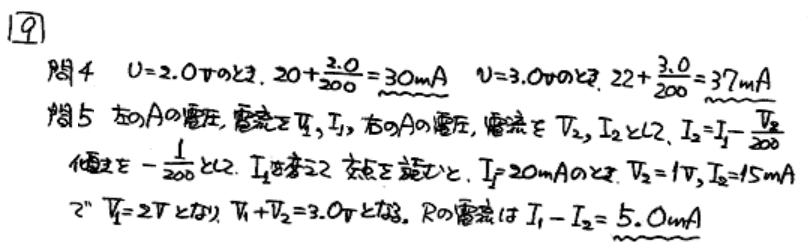 9
問4 V=2.0Vのとき. 20+2.0/200=30mA V=3.0Vのとき. 22+3.0/200=37mA
問5 左のAの電圧, 電流をV₁, I₁, 右のAの電圧, 電流をV₂, I₂として, I₂=I₁-V₂/200
傾きを -1/200 として. I₁を変えて 交点を読むと, I₁=20mAのとき. V₂=1V, I₂=15mA
で V₁=2Vとなり V₁+V₂=3.0Vとなる. Rの電流は I₁-I₂=5.0mA